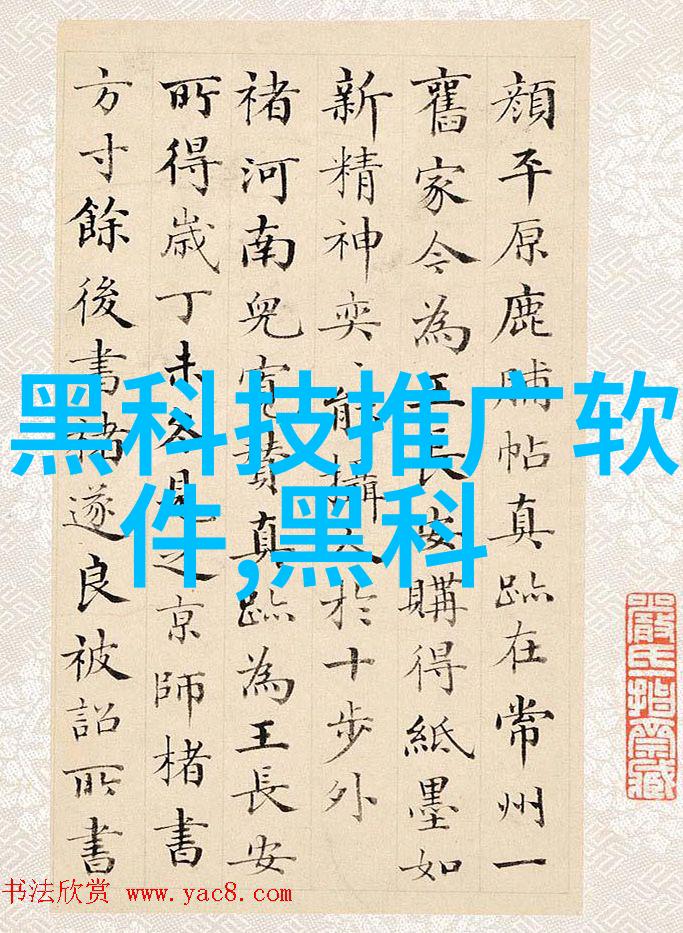 顔平原鹿脯帖真跡在常州一
舊家今為王長安購得紙墨如
新精神奕、能攝人於十步外
褚河南兒寬贊真跡為王長安
所得歲丁未冬見之京師楮書
方寸餘後書褚遂良被詔所書
黑科技推广软
件,黑科
书法欣赏 www.yac8.com